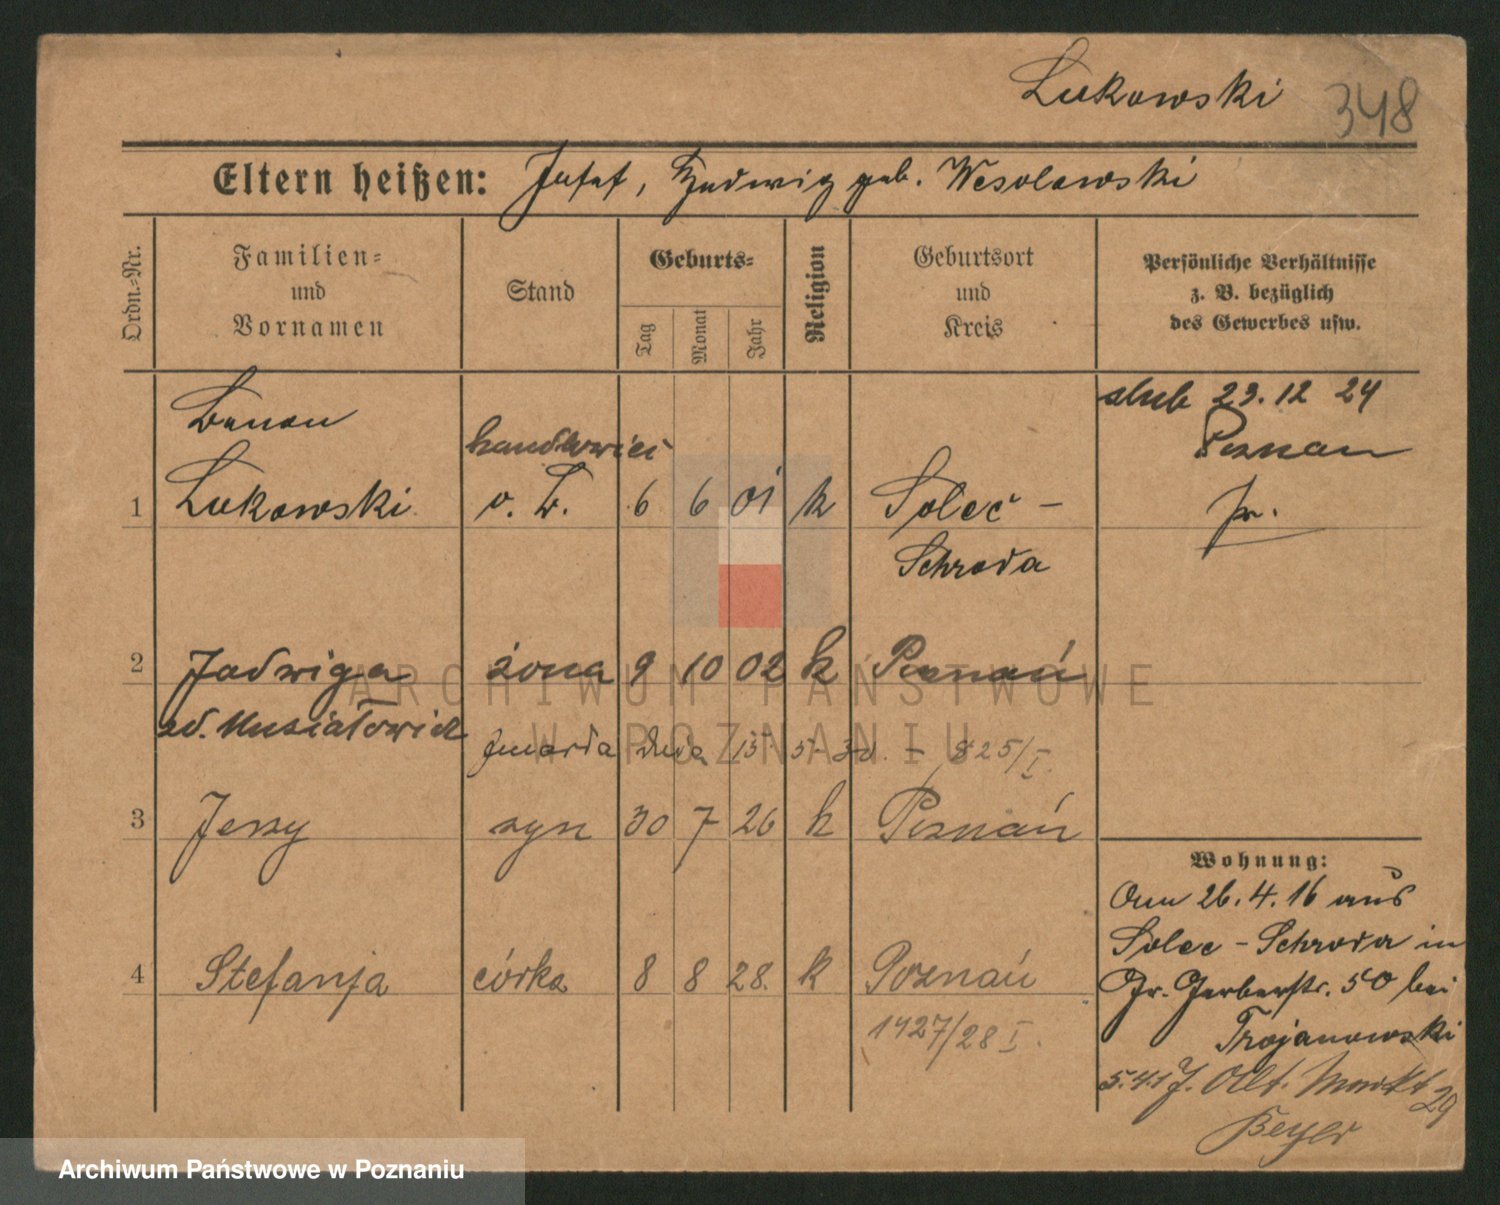 Lukowski 348
Eltern heißen: Josef, Hedwig geb. Wesolowski
Ordn.-Nr.
Familien- und Vornamen
Stand
Geburts-
Tag
Monat
Jahr
Religion
Geburtsort und Kreis
Persönliche Verhältnisse z. B. bezüglich des Gewerbes usw.
Benon
handlowiec
ślub 23.12 24
Poznan
1 Lukowski v. B. 6 6 01 k Solec -
Schroda
Pr.
2 Jadwiga żona 9 10 02 k Poznań
zd. Musiałowicz
zmarła dnia 15. 5. 30. - 825/I.
3 Jerzy syn 30 7 26 k Poznań
4 Stefanja córka 8 8 28. k Poznań
1427/28 I.
Wohnung:
Am 26.4.16 aus
Solec - Schroda in
Gr. Gerberstr. 50 bei
Trojanowski
5.4.17. Alt. Markt 29
Beyer
ARCHIWUM PAŃSTWOWE
W POZNANIU
Archiwum Państwowe w Poznaniu